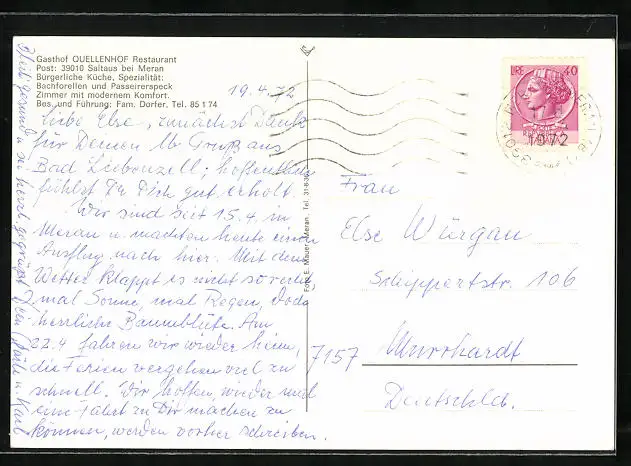 Gasthof QUELLENHOF Restaurant
Post: 39010 Saltaus bei Meran
Bürgerliche Küche, Spezialität:
Bachforellen und Passeirerspeck
Zimmer mit modernem Komfort.
Bes. und Führung: Fam. Dorfer. Tel. 85 1 74
19.4.72
Liebe Else, zunächst Dank
für Deinen lb. Gruß aus
Bad Liebenzell; hoffentlich
fühlst Du Dich gut erholt.
Wir sind seit 15.4. in
Meran u. machten heute einen
Ausflug nach hier. Mit dem
Wetter klappt es nicht so recht
mal Sonne, mal Regen, doch
herrliche Baumblüte. Am
22.4 fahren wir wieder heim,
die Ferien vergehen viel zu
schnell. Wir hoffen, wieder mal
eine Fahrt zu Dir machen zu
können, werden vorher schreiben.
Bleib gesund u. sei herzl. gegrüßt u. Karl
Foto E. Mauer, Meran. Tel.
LIRE 40
1972
Frau
Else Würgau
Schippertstr. 106
7157 Murrhardt
Deutschld.